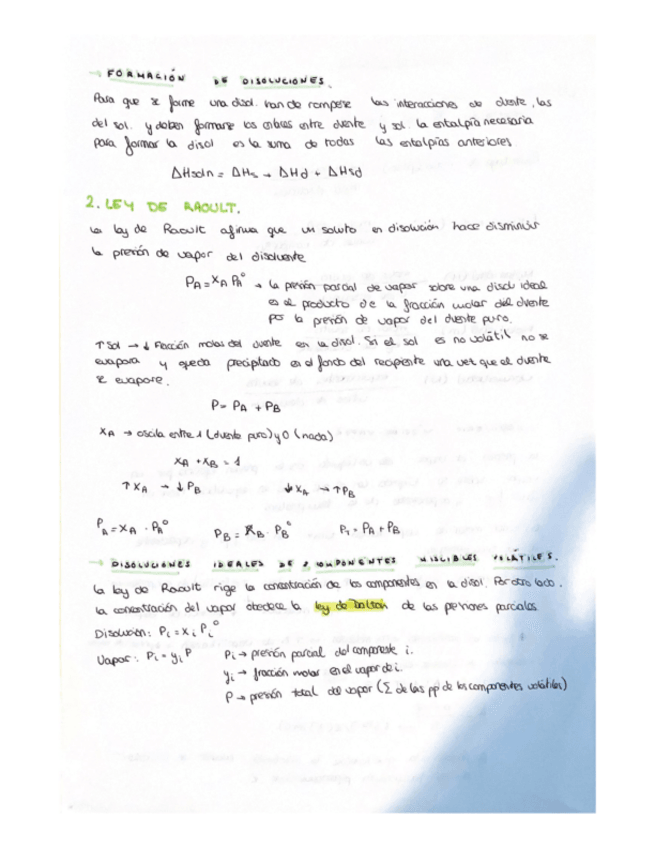 → FORMACIÓN DE DISOLUCIONES.
Para que se forme una disol. han de romperse las interacciones de dvente, las
del sol. y deben formarse los enlaces entre dvente y sol. la entalpía necesaria
para formar la disol es la suma de todas las entalpías anteriores
ΔHsoln = ΔHs + ΔHd + ΔHsd
2. LEY DE RAOULT.
La ley de Raoult afirma que un soluto en disolución hace disminuir
la presión de vapor del disolvente
PA = XA PA° → La presión parcial de vapor sobre una disol ideal
es el producto de la fracción molar del dvente
por la presión de vapor del dvente puro.
↑ Sol → ↓ fracción molar del dvente en la disol. Si el sol es no volátil no se
evapora y queda precipitado en el fondo del recipiente una vez que el dvente
se evapore.
P = PA + PB
XA → oscila entre 1 (dvente puro) y 0 (nada)
XA + XB = 1
↑ XA → ↓ PB ↓ XA → ↑ PB
PA = XA · PA° PB = XB · PB° PT = PA + PB
→ DISOLUCIONES IDEALES DE 2 COMPONENTES MISCIBLES VOLÁTILES.
La ley de Raoult rige la concentración de los componentes en la disol. Por otro lado,
la concentración del vapor obedece la ley de Dalton de las presiones parciales
Disolución: Pi = xi Pi°
Vapor: Pi = yi P Pi → presión parcial del componente i.
yi → fracción molar en el vapor de i.
P → presión total del vapor (Σ de las pp de los componentes volátiles)